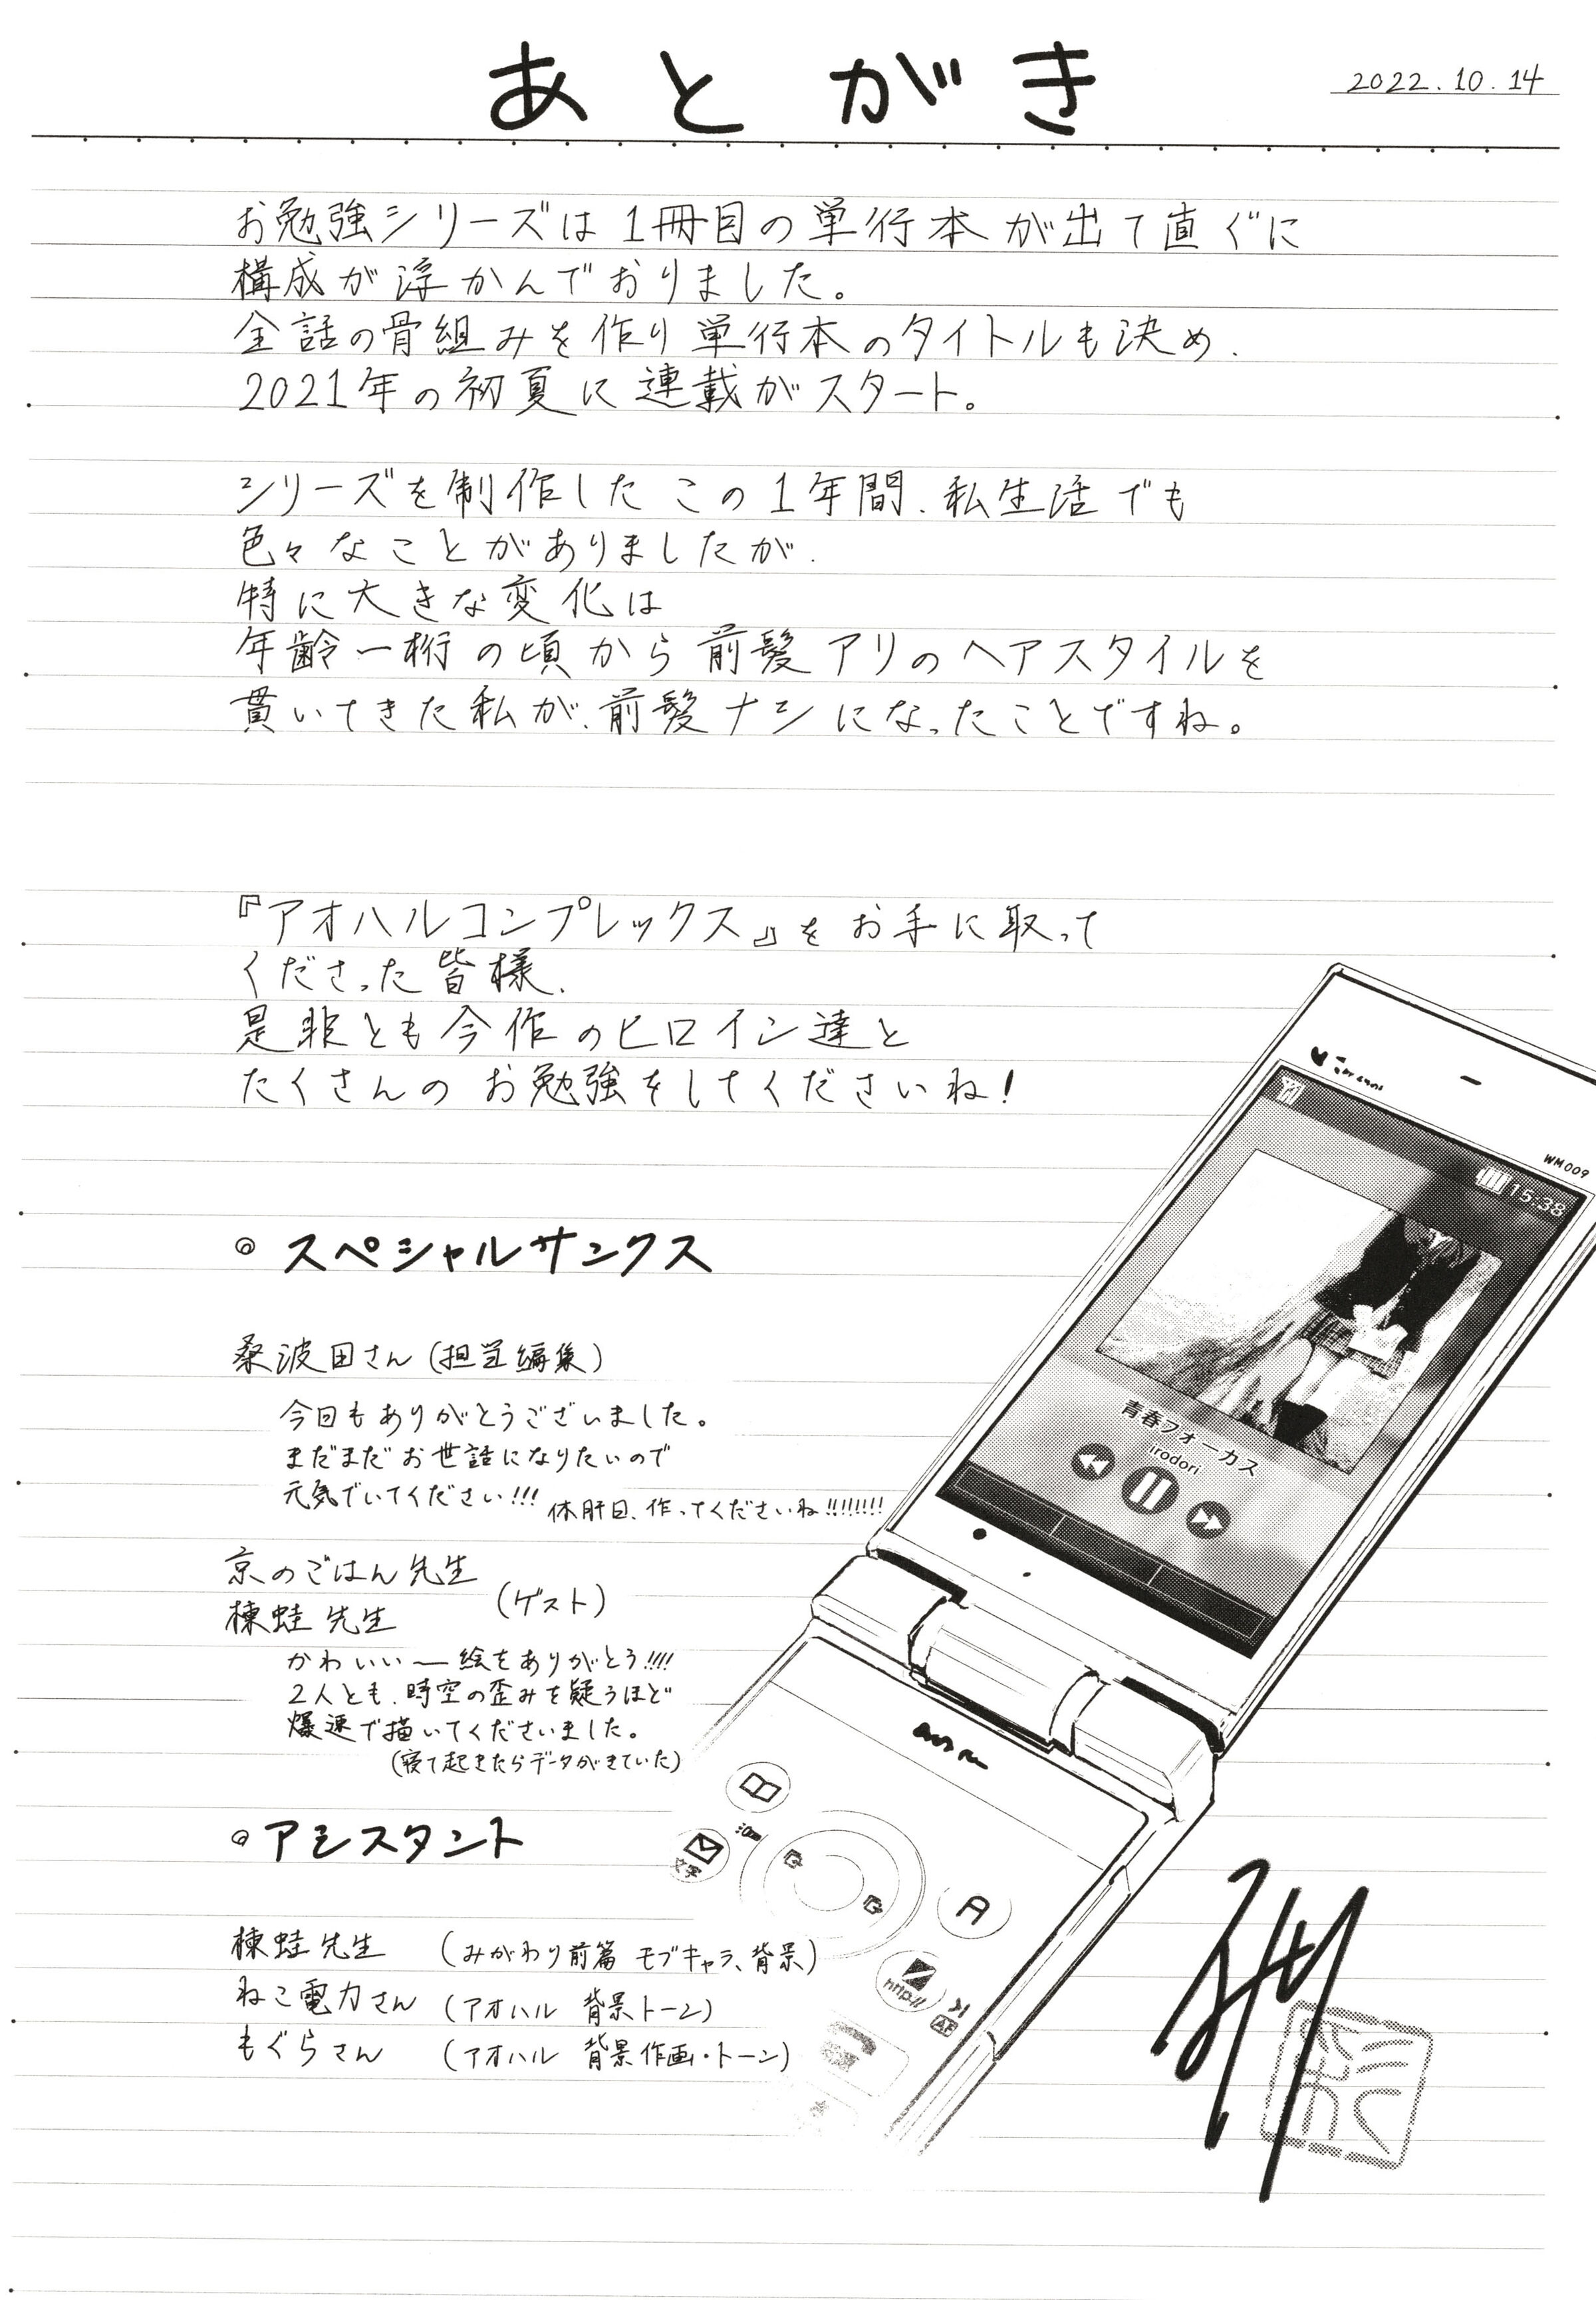 あとがき
2022.10.14
お勉強シリーズは1冊目の単行本が出て直ぐに
構成が浮かんでおりました。
全話の骨組みを作り単行本のタイトルも決め、
2021年の初夏に連載がスタート。
シリーズを制作したこの1年間、私生活でも
色々なことがありましたが、
特に大きな変化は
年齢一桁の頃から前髪アリのヘアスタイルを
貫いてきた私が、前髪ナシになったことですね。
『アオハルコンプレックス』をお手に取って
くださった皆様、
是非とも今作のヒロイン達と
たくさんのお勉強をしてくださいね!
◎スペシャルサンクス
桑波田さん(担当編集)
今回もありがとうございました。
まだまだお世話になりたいので
元気でいてください!!!
休肝日、作ってくださいね!!!!!!!!
京のごはん先生
棟蛙先生
(ゲスト)
かわいい〜絵をありがとう!!!!
2人とも、時空の歪みを疑うほど
爆速で描いてくださいました。
(寝て起きたらデータがきていた)
◎アシスタント
棟蛙先生 (みがわり前篇 モブキャラ、背景)
ねこ電力さん (アオハル 背景トーン)
もぐらさん (アオハル 背景作画・トーン)
WM009
15:38
青春フォーカス
irodori
文字
A
http://
AF